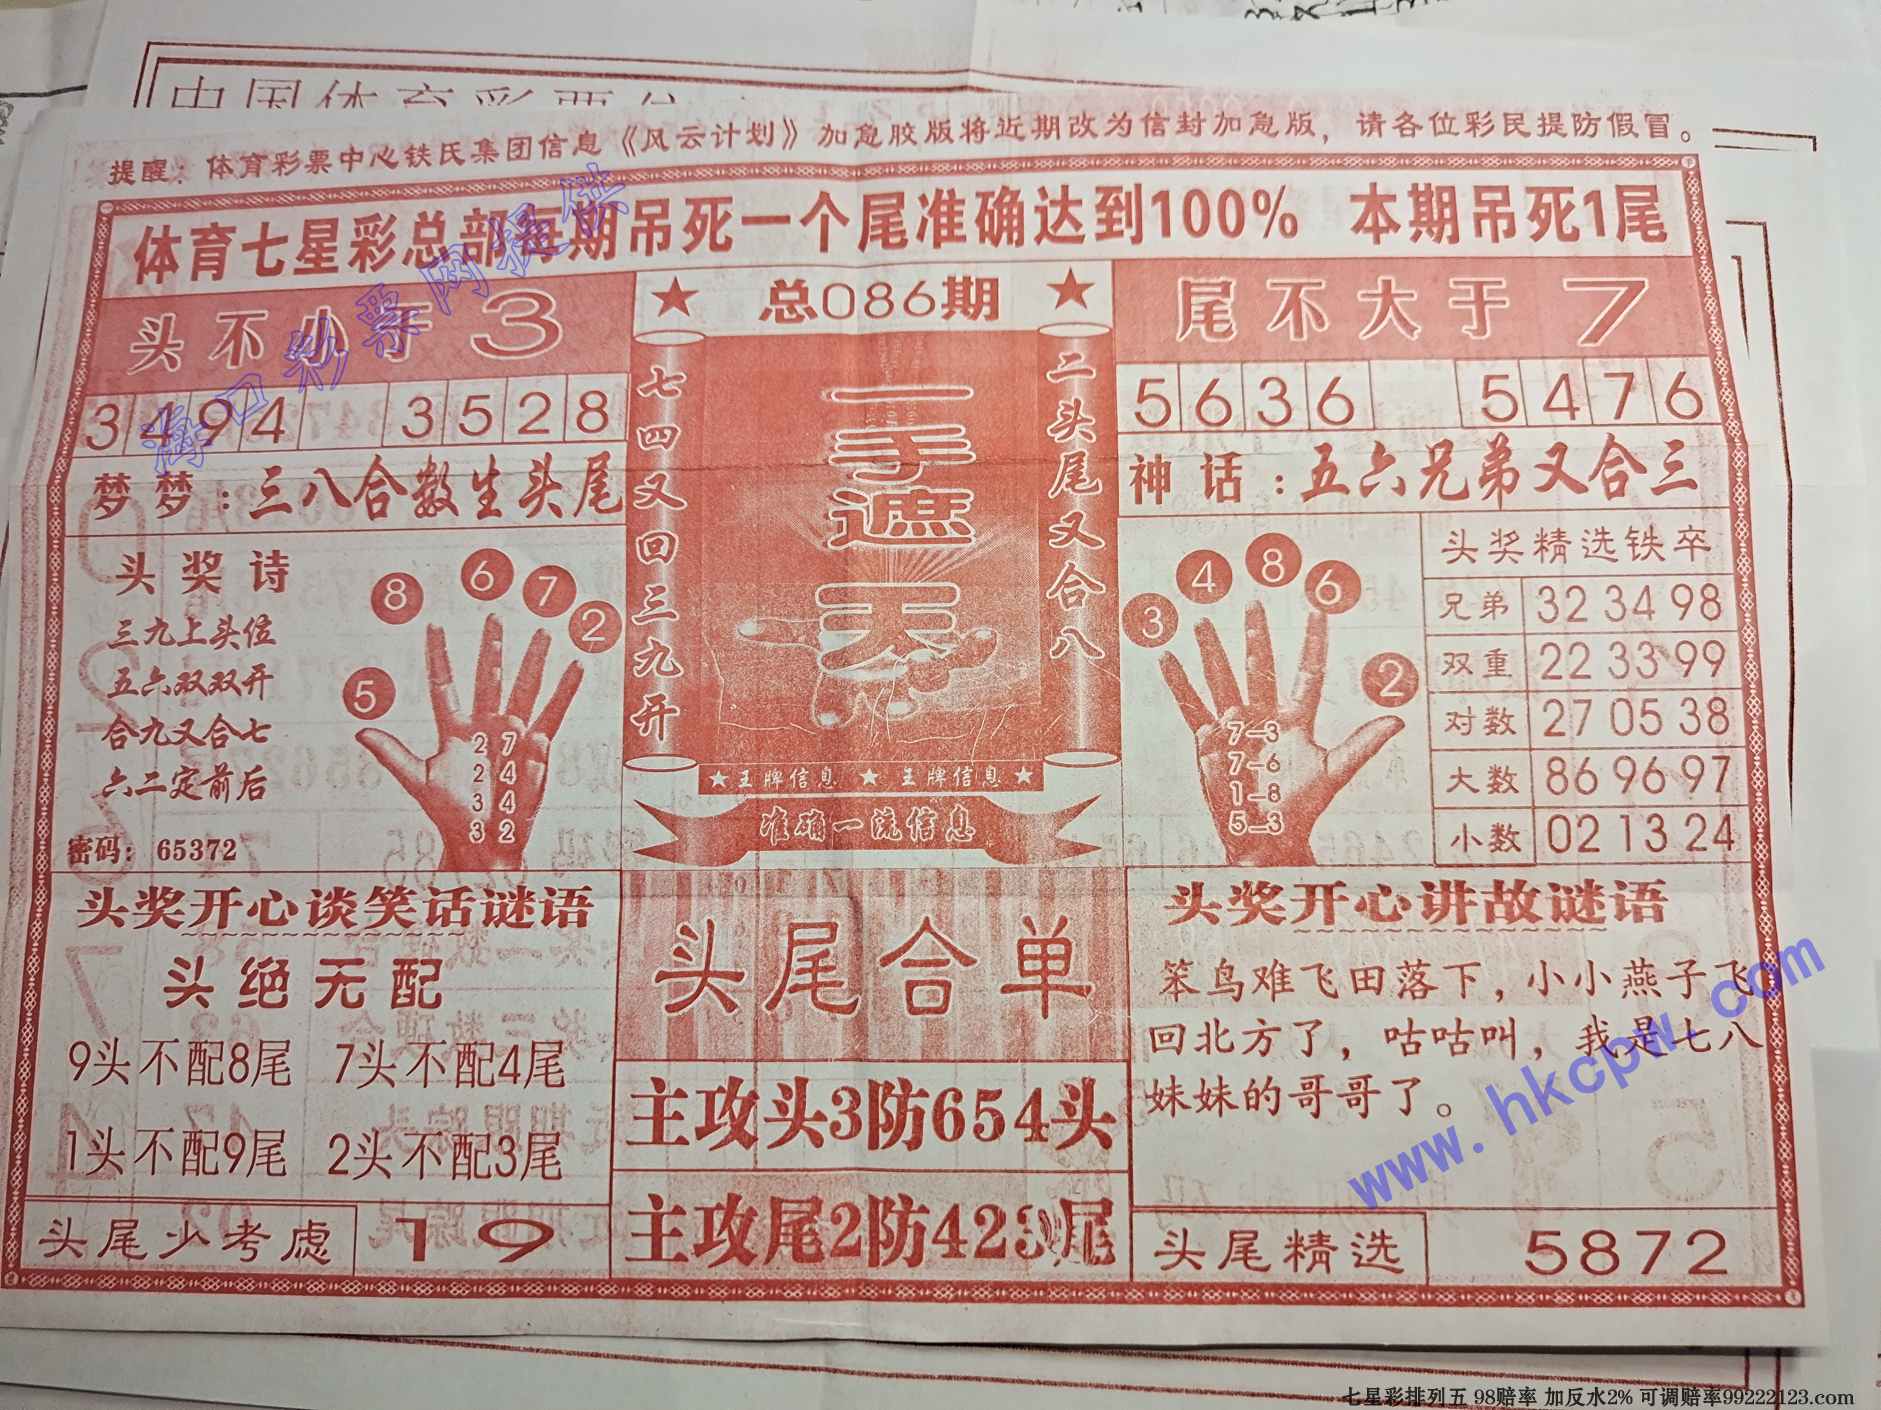 中国体育彩票
提醒：体育彩票中心铁氏集团信息《风云计划》加急胶版将近期改为信封加急版，请各位彩民提防假冒。
体育七星彩总部每期吊死一个尾准确达到100% 本期吊死1尾
头不小于3
总086期
尾不大于7
3494 3528
5636 5476
梦梦：三八合数生头尾
七四又回三九开
一手遮天
二头尾又合八
神话：五六兄弟又合三
头奖诗
三九上头位
五六双双开
合九又合七
六二定前后
密码：65372
8 6 7 2 5
2 7
2 4
3 4
3 2
★王牌信息★王牌信息★
准确一流信息
3 4 8 6 2
7-3
7-6
1-8
5-3
头奖精选铁卒
兄弟 32 34 98
双重 22 33 99
对数 27 05 38
大数 86 96 97
小数 02 13 24
头奖开心谈笑话谜语
头绝无配
9头不配8尾 7头不配4尾
1头不配9尾 2头不配3尾
头尾少考虑 19
头尾合单
主攻头3防654头
主攻尾2防423尾
头奖开心讲故谜语
笨鸟难飞田落下，小小燕子飞
回北方了，咕咕叫，我是七八
妹妹的哥哥了。
头尾精选 5872
海口彩票网提供
www.hkcpw.com
七星彩排列五 98赔率 加反水2% 可调赔率99222123.com